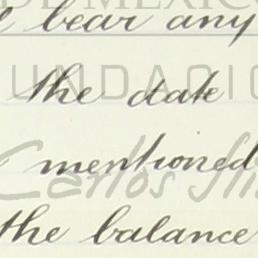 DE MÉXICO
bear any
FUNDACIÓN
the date
mentioned
Carlos Slim
the balance